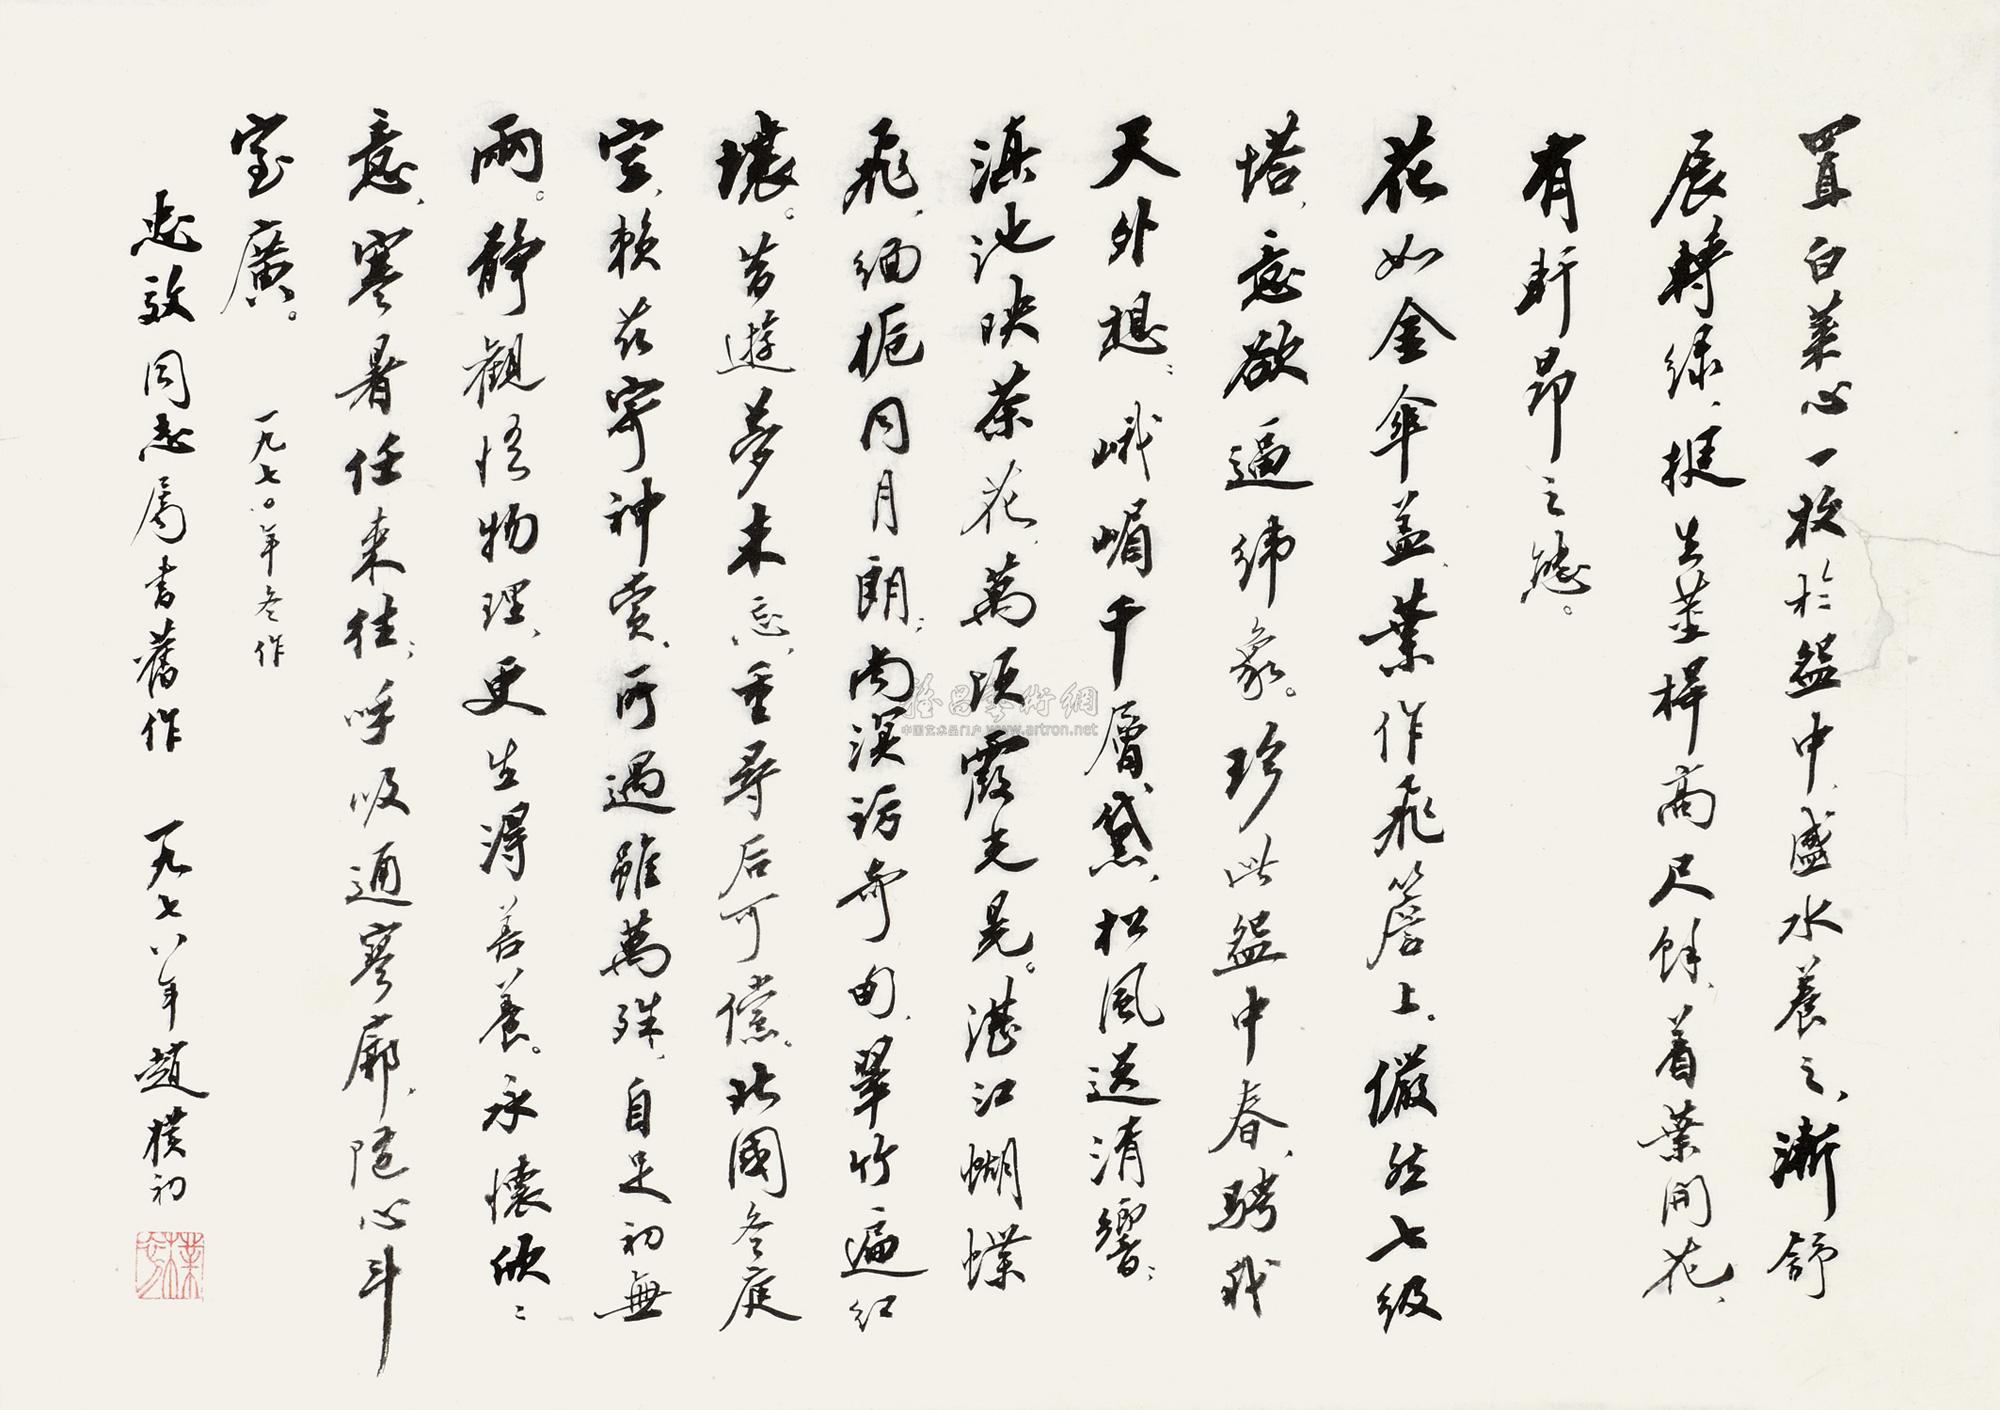 置白菜心一枚於盌中,盛水養之,漸舒
展轉綠,挺生莖桿高尺餘,着葉開花,
有軒昂之態。
花如金傘蓋,葉作飛簷上。儼然七級
塔,意欲逼緯象。珍此盌中春,騁我
天外想:峨嵋千層黛,松風送清響;
滇池映茶花,萬頃霞光晃。湛江蝴蝶
飛,緬栀同月朗;南溟訪奇甸,翠竹遍紅
壤。昔遊夢未忘,重尋后可儻。北國冬庭
空,賴茲寄神賞。所遇雖萬殊,自足初無
兩。靜觀悟物理,更生得善養。永懷欣欣
意,寒暑任來往;呼吸通寥廓,隨心斗
室廣。 一九七〇年冬作
忠同志屬書舊作 一九七八年 趙樸初
樸初
雅昌藝術網
中国艺术品门户 www.artron.net